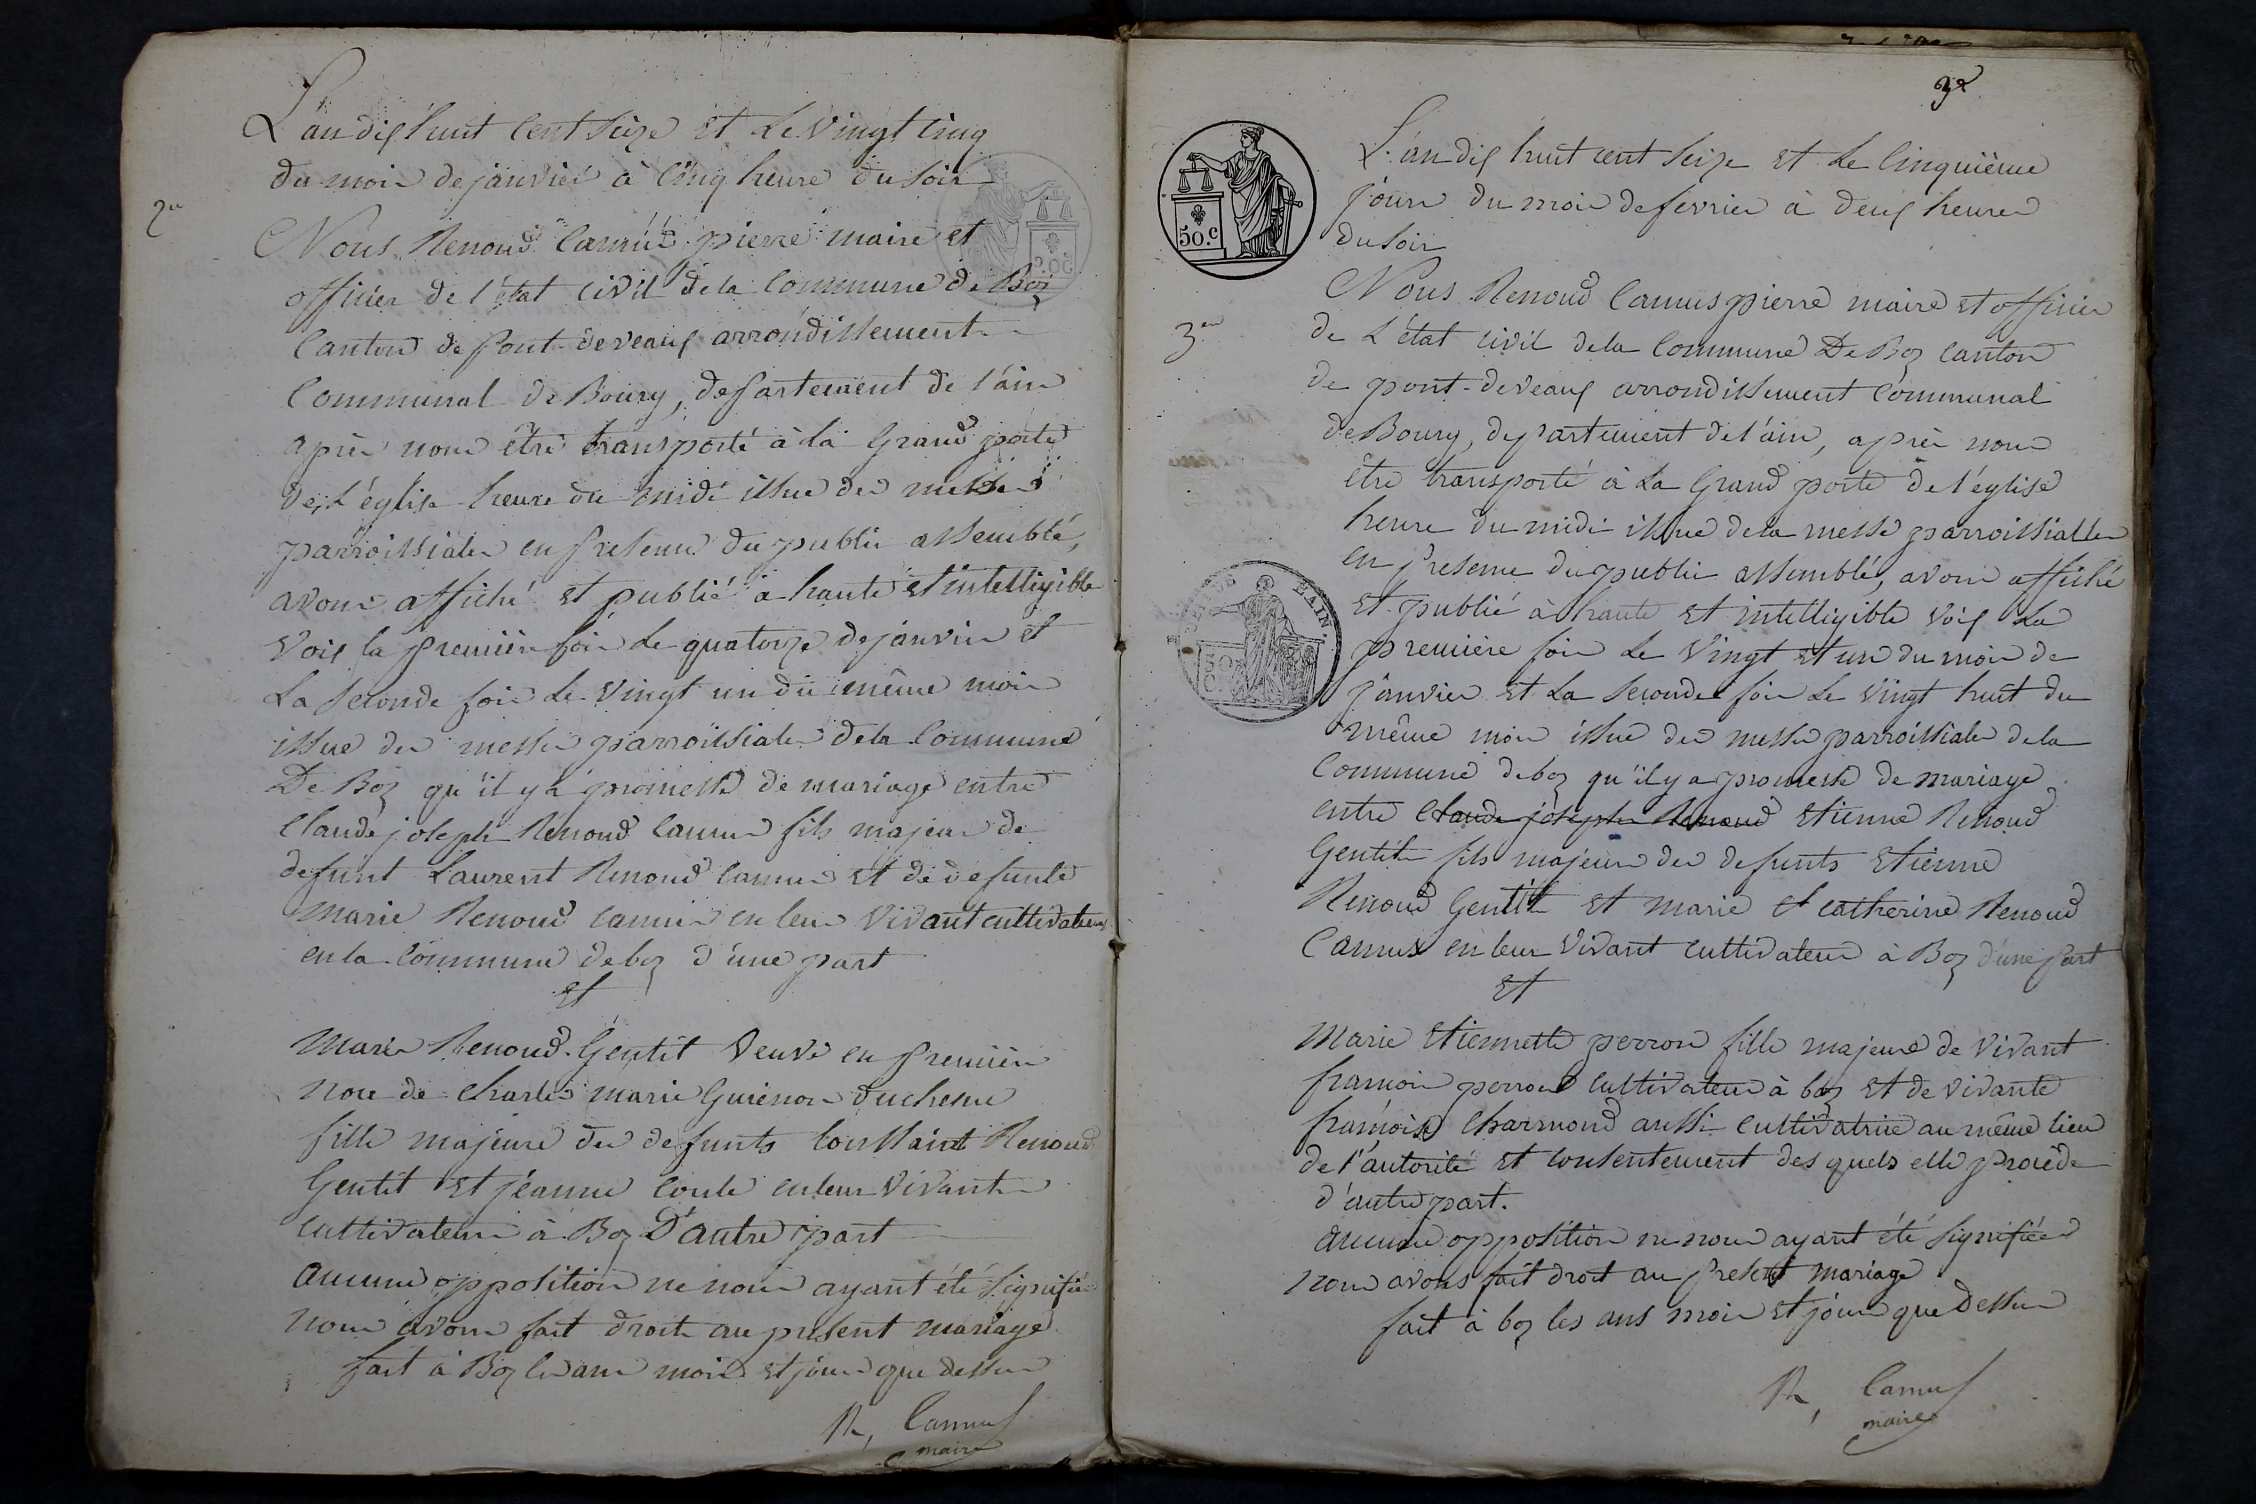 L'an dix huit cent seize et le vingt cinq
du mois de janvier à cinq heure du soir
2e
Nous Renoud Camus pierre maire et
officier de l'état civil de la Commune de Boz
Canton de pont-deveaux arrondissement
Communal de Bourg, departement de l'ain
après nous être transporté à la Grand porte
de L'église heure du midi issue des messes
parroissiales en presence du public assemblé,
avons affiché et publié à haute et intelligible
voix la premiere fois le quatorze de janvier et
La seconde fois le vingt un du même mois
issue des messes parroissiales de la Commune
De Boz qu'il y à promesse de mariage entre
Claude joseph Renoud Camus fils majeur de
defunt Laurent Renoud Camus et de defunte
Marie Renoud Camus en leur vivant cultivateurs
en la Commune de boz d'une part
et
Marie Renoud-Gentit veuve en premiere
noce de Charles marie Guienon duchene
fille majeure des defunts toussaint Renoud
Gentit et jéanne Conte en leur vivant
cultivateurs à Boz D'autre part
aucune opposition ne nous ayant été signifiée
nous avons fait droit au present mariage
fait à Boz les ans mois et jour que dessus
R, Camus
maire
L'an dix huit cent seize et le Cinquième
jour du mois de fevrier à deux heures
du soir
50.c
3e
Nous Renoud Camus pierre maire et officier
de L'état civil de la Commune De Boz canton
de pont-deveaux arrondissement Communal
de Bourg, departement de l'ain, après nous
être transporté à la Grand porte de l'église
heure du midi issue de la messe parroissialle
en presence du public assemblé, avons affiché
et publié à haute et intelligible voix La
premiére fois Le vingt et un du mois de
janvier et la seconde fois Le vingt huit du
même mois issue des messes parroissiales de la
Commune de boz qu'il y a promesse de mariage
entre Claude joseph Renoud Etienne Renoud
Gentit fils majeur des defunts Etienne
Renoud Gentit et marie et catherine Renoud
Camus en leur vivant cultivateurs à Boz d'une part
et
Marie Etiennette perron fille majeure de vivant
francois perron cultivateur à boz et de vivante
françoise Charmond aussi cultivatrice au même lieu
de l'autorité et consentement des quels elle procède
d'autre part.
aucune opposition ne nous ayant été signifiée
nous avons fait droit au present mariage
fait à boz les ans mois et jour que dessus
R, Camus
maire